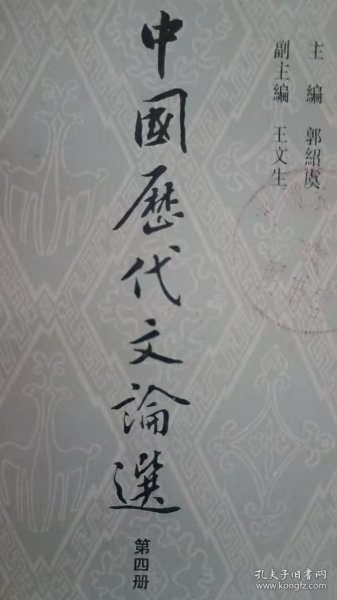 主編 郭紹虞
副主編 王文生
中國歷代文論選
第四册
孔夫子旧书网